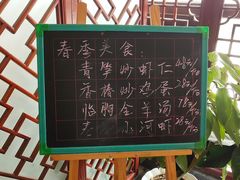 春季美食:
青笋炒虾仁 48元/份
香椿炒鸡蛋 28元/份
临朐全羊汤 78元/份
小河虾 28元/份